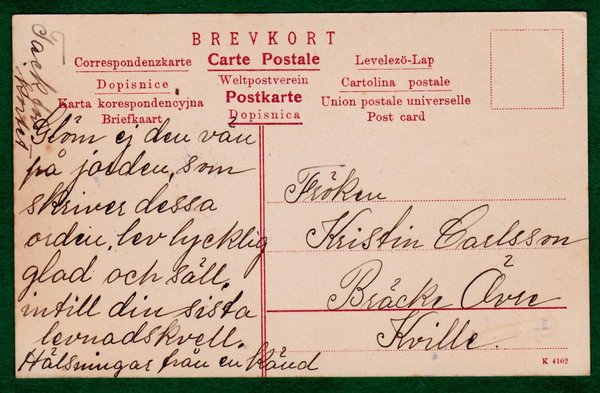 BREVKORT
Correspondenzkarte Carte Postale Levelező-Lap
Dopisnice Weltpostverein Cartolina postale
Karta korespondencyjna Postkarte Union postale universelle
Briefkaart Dopisnica Post card
Glöm ej den vän
på jorden, som
skriver dessa
orden, lev lycklig
glad och säll,
intill din sista
levnadskvell.
Hälsningar från en känd
Fröken
Kristin Carlsson
Bräcke Övre
Kville.
K 4102